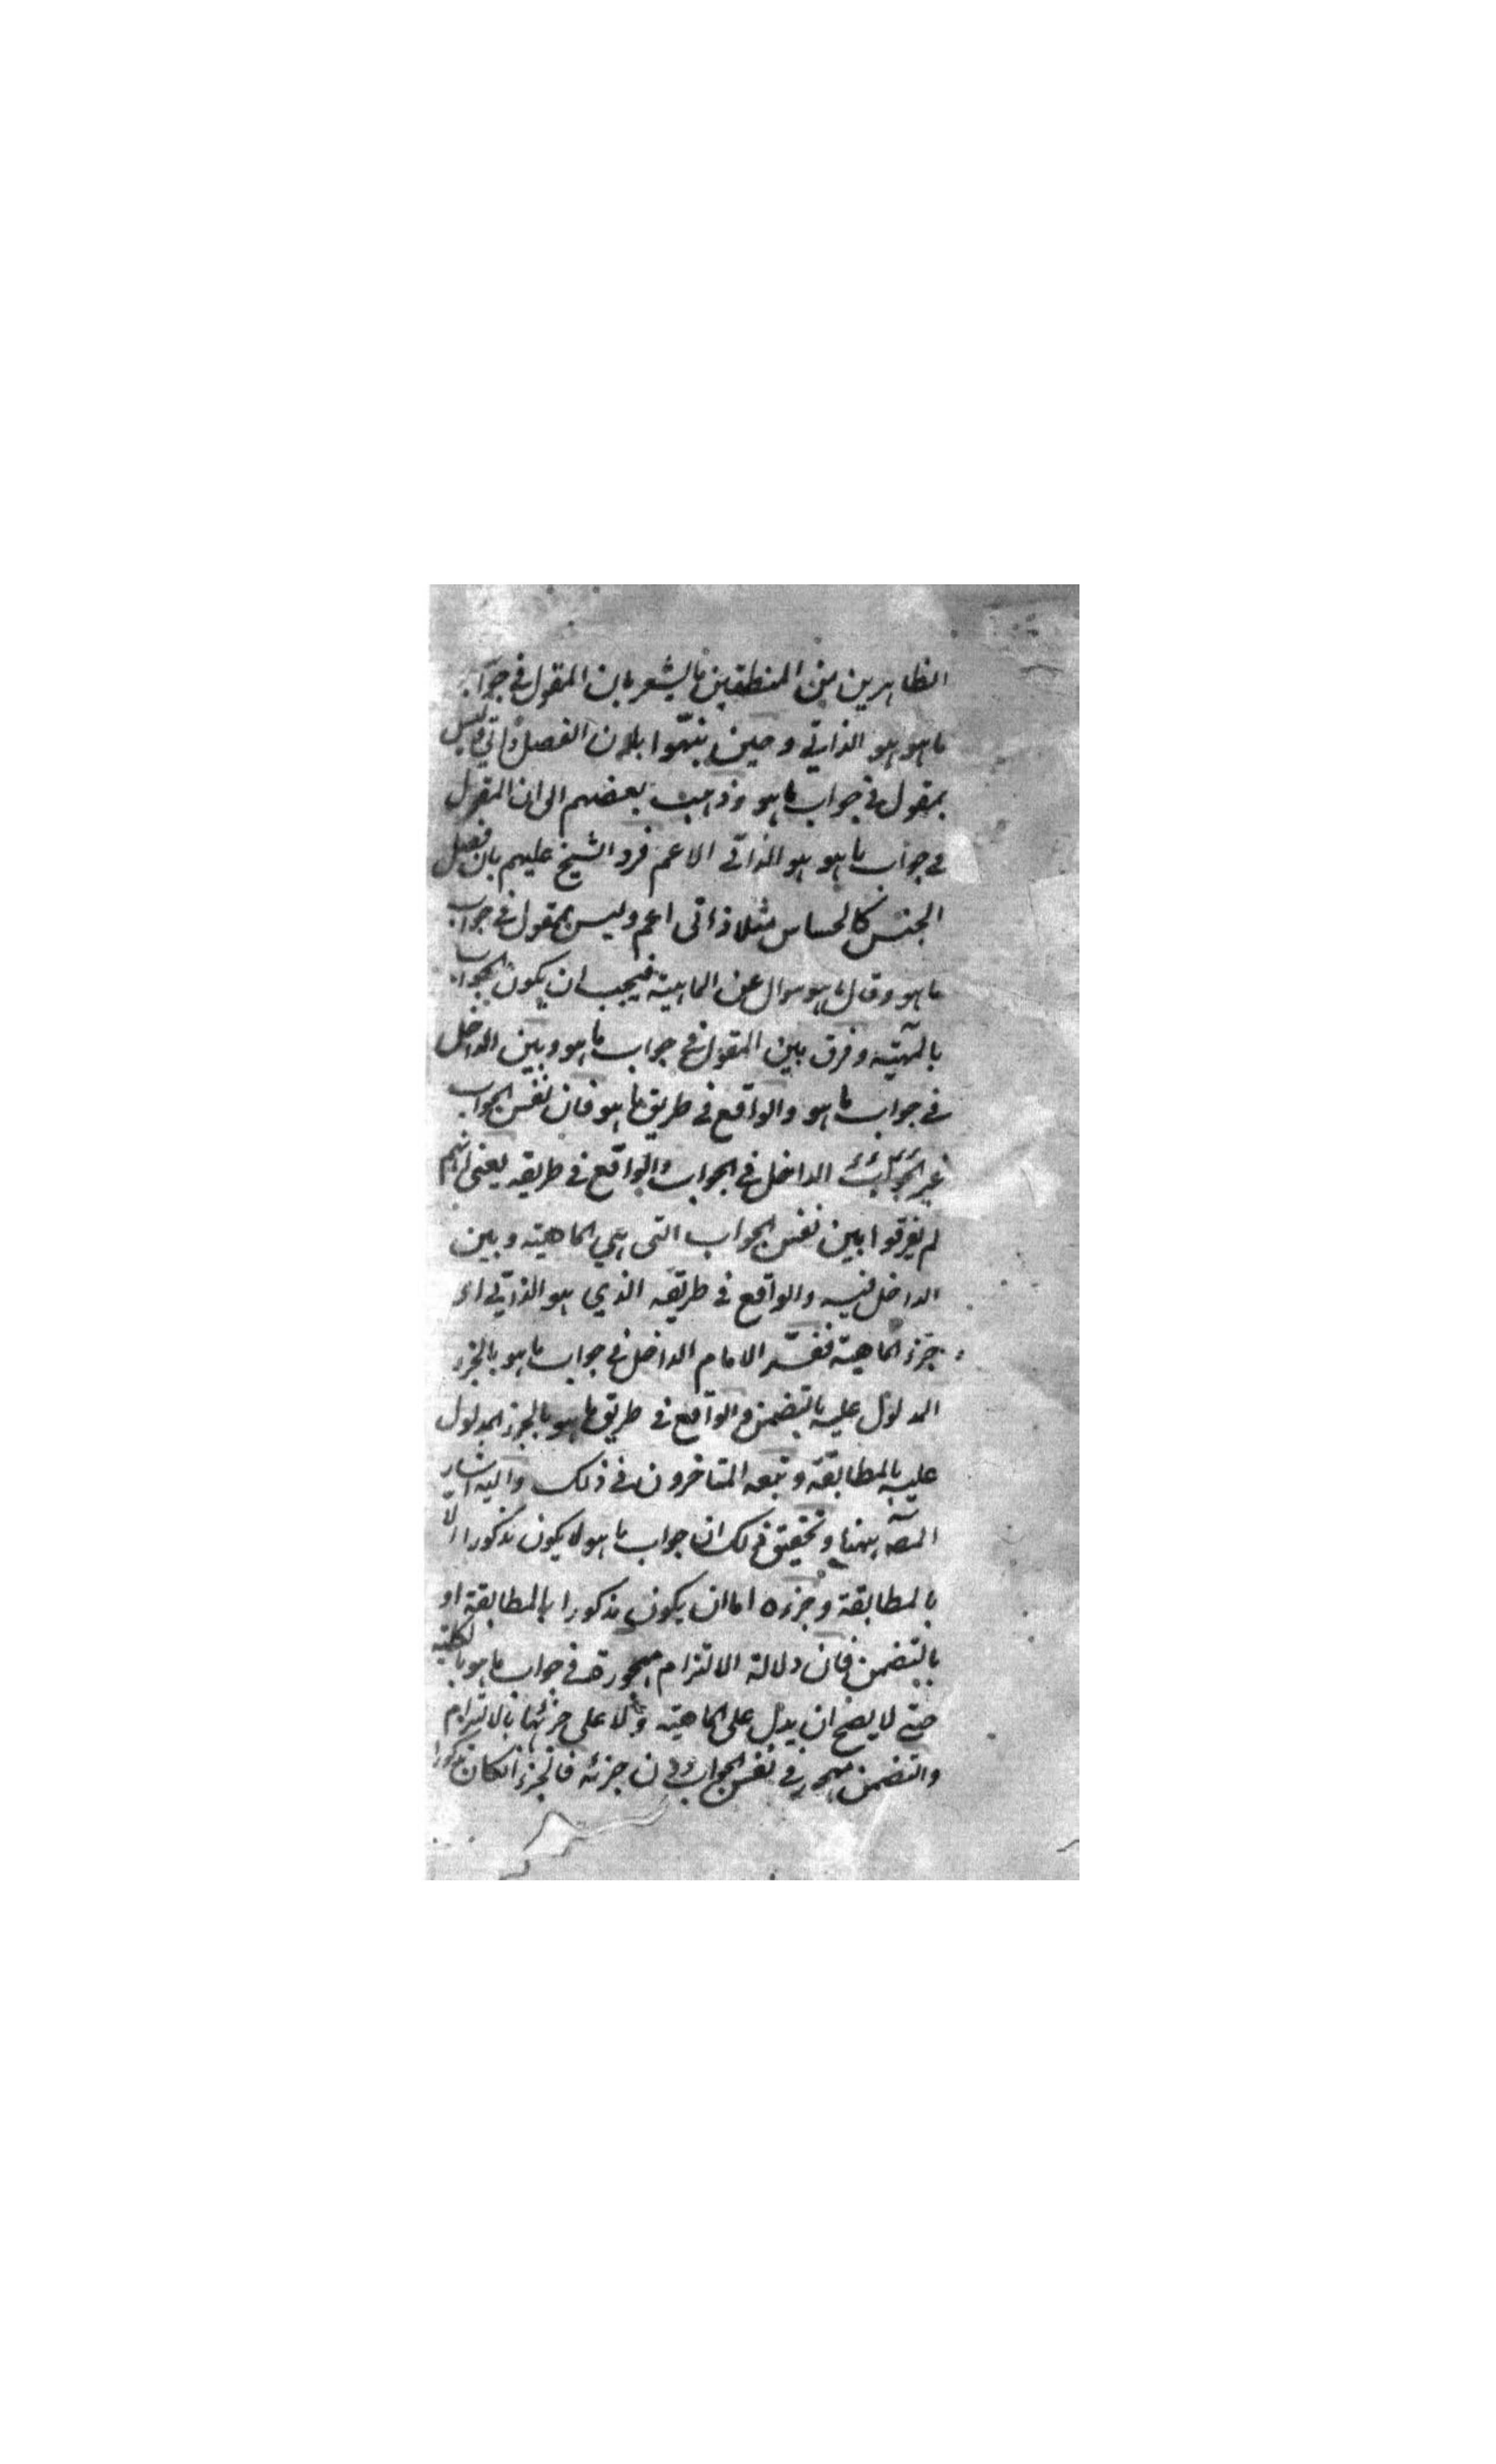 الظاهرين من المنطقيين ما يشعر بان المقول في جواب
ما هو هو الذاتي وحين نبهوا بان الفصل ذاتي وليس
بمقول في جواب ما هو وذهب بعضهم الى ان المقول
في جواب ما هو هو الذاتي الاعم فرد الشيخ عليهم بان فصل
الجنس كالحساس مثلا ذاتى اعم وليس بمقول في جواب
ما هو وقال ما هو سوال عن الماهية فيجب ان يكون الجواب
بالمهية وفرق بين المقول في جواب ما هو وبين الداخل
في جواب ما هو والواقع في طريق ما هو فان نفس الجواب
غير الداخل في الجواب والواقع في طريقه يعنى انهم
لم يفرقوا بين نفس الجواب التى هي الماهية وبين
الداخل فيه والواقع في طريقه الذي هو الذاتي اى
جزء الماهية ففسر الامام الداخل في جواب ما هو بالجزء
المدلول عليه بالتضمن والواقع في طريق ما هو بالجزء المدلول
عليه بالمطابقة وتبعه المتاخرون في ذلك واليه اشار
المصـ ههنا وتحقيق ذلك ان جواب ما هو لا يكون مذكورا الّا
بالمطابقة وجزءه اما ان يكون مذكورا بالمطابقة او
بالتضمن فان دلالة الالتزام مهجورة في جواب ما هو بالكلية
حتى لا يصح ان يدل على الماهية ولا على جزئها بالالتزام
والتضمن مهجور في نفس الجواب دون جزئه فالجزء انكان مذكورا